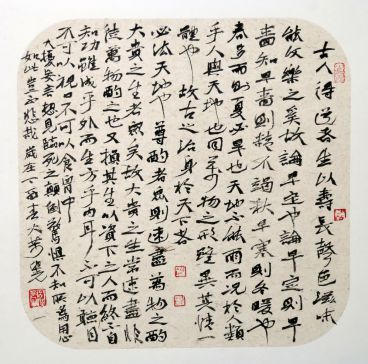 古人得道者生以壽長聲色滋味
能久樂之奚故論早定也論早定則早
嗇知早嗇則精不竭秋早寒則冬暖也
春多雨則夏必旱也天地不能兩而況於人類
乎人與天地也同萬物之形雖異其情一
體也故古之治身於天下者
必法天地也尊酌者眾則速盡萬物之酌
大貴之生者眾矣故大貴之生常速盡非
徒萬物酌之也又損其生以資下之人而終不自
知功雖成乎外而生虧乎內耳不可以聽目
不可以視口不可以食胸中
大擾妄言想見臨死之顛倒驚懼不知所為用心
如此豈不悲哉歲在丁酉